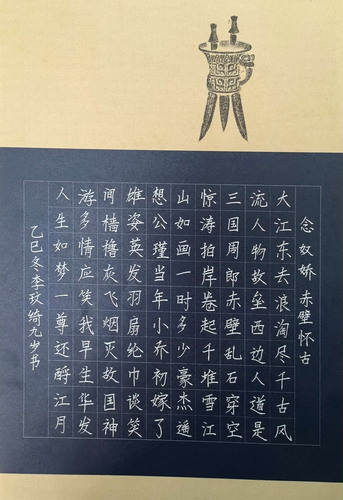 念奴娇 赤壁怀古
大江东去浪淘尽千古风
流人物故垒西边人道是
三国周郎赤壁乱石穿空
惊涛拍岸卷起千堆雪江
山如画一时多少豪杰遥
想公瑾当年小乔初嫁了
雄姿英发羽扇纶巾谈笑
间樯橹灰飞烟灭故国神
游多情应笑我早生华发
人生如梦一尊还酹江月
乙巳冬李玟绮九岁书